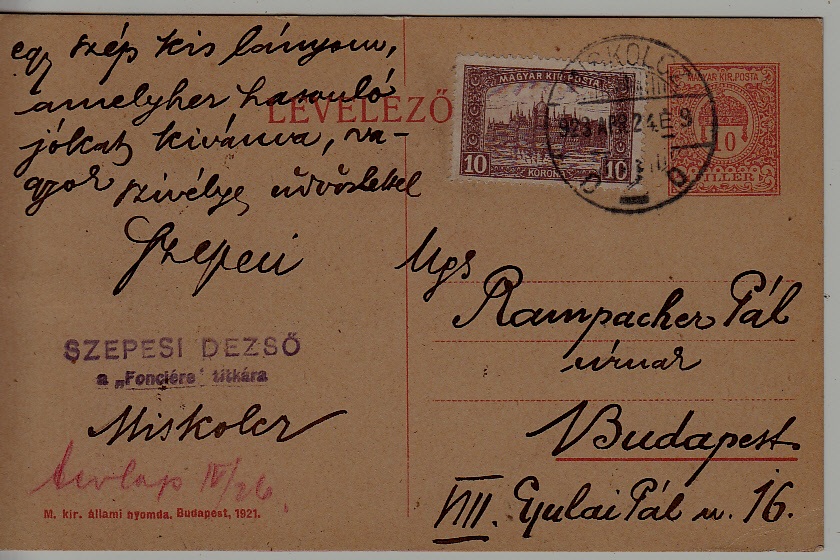 egy szép kis lányom,
amelyhez hasonló
jókat kivánva, va-
gyok szivélyes üdvözlettel
Szepesi
SZEPESI DEZSŐ
a „Fonciére" titkára
Miskolcz
IV/26.
M. kir. állami nyomda. Budapest, 1921.
LEVELEZŐ
MAGYAR KIR. POSTA
10 10
KORONA
MISKOLC
923 APR 24 E 9
MAGYAR KIR. POSTA
10
FILLER
Ngs
Rampacher Pál
úrnak
Budapest
VIII. Gyulai Pál u. 16.